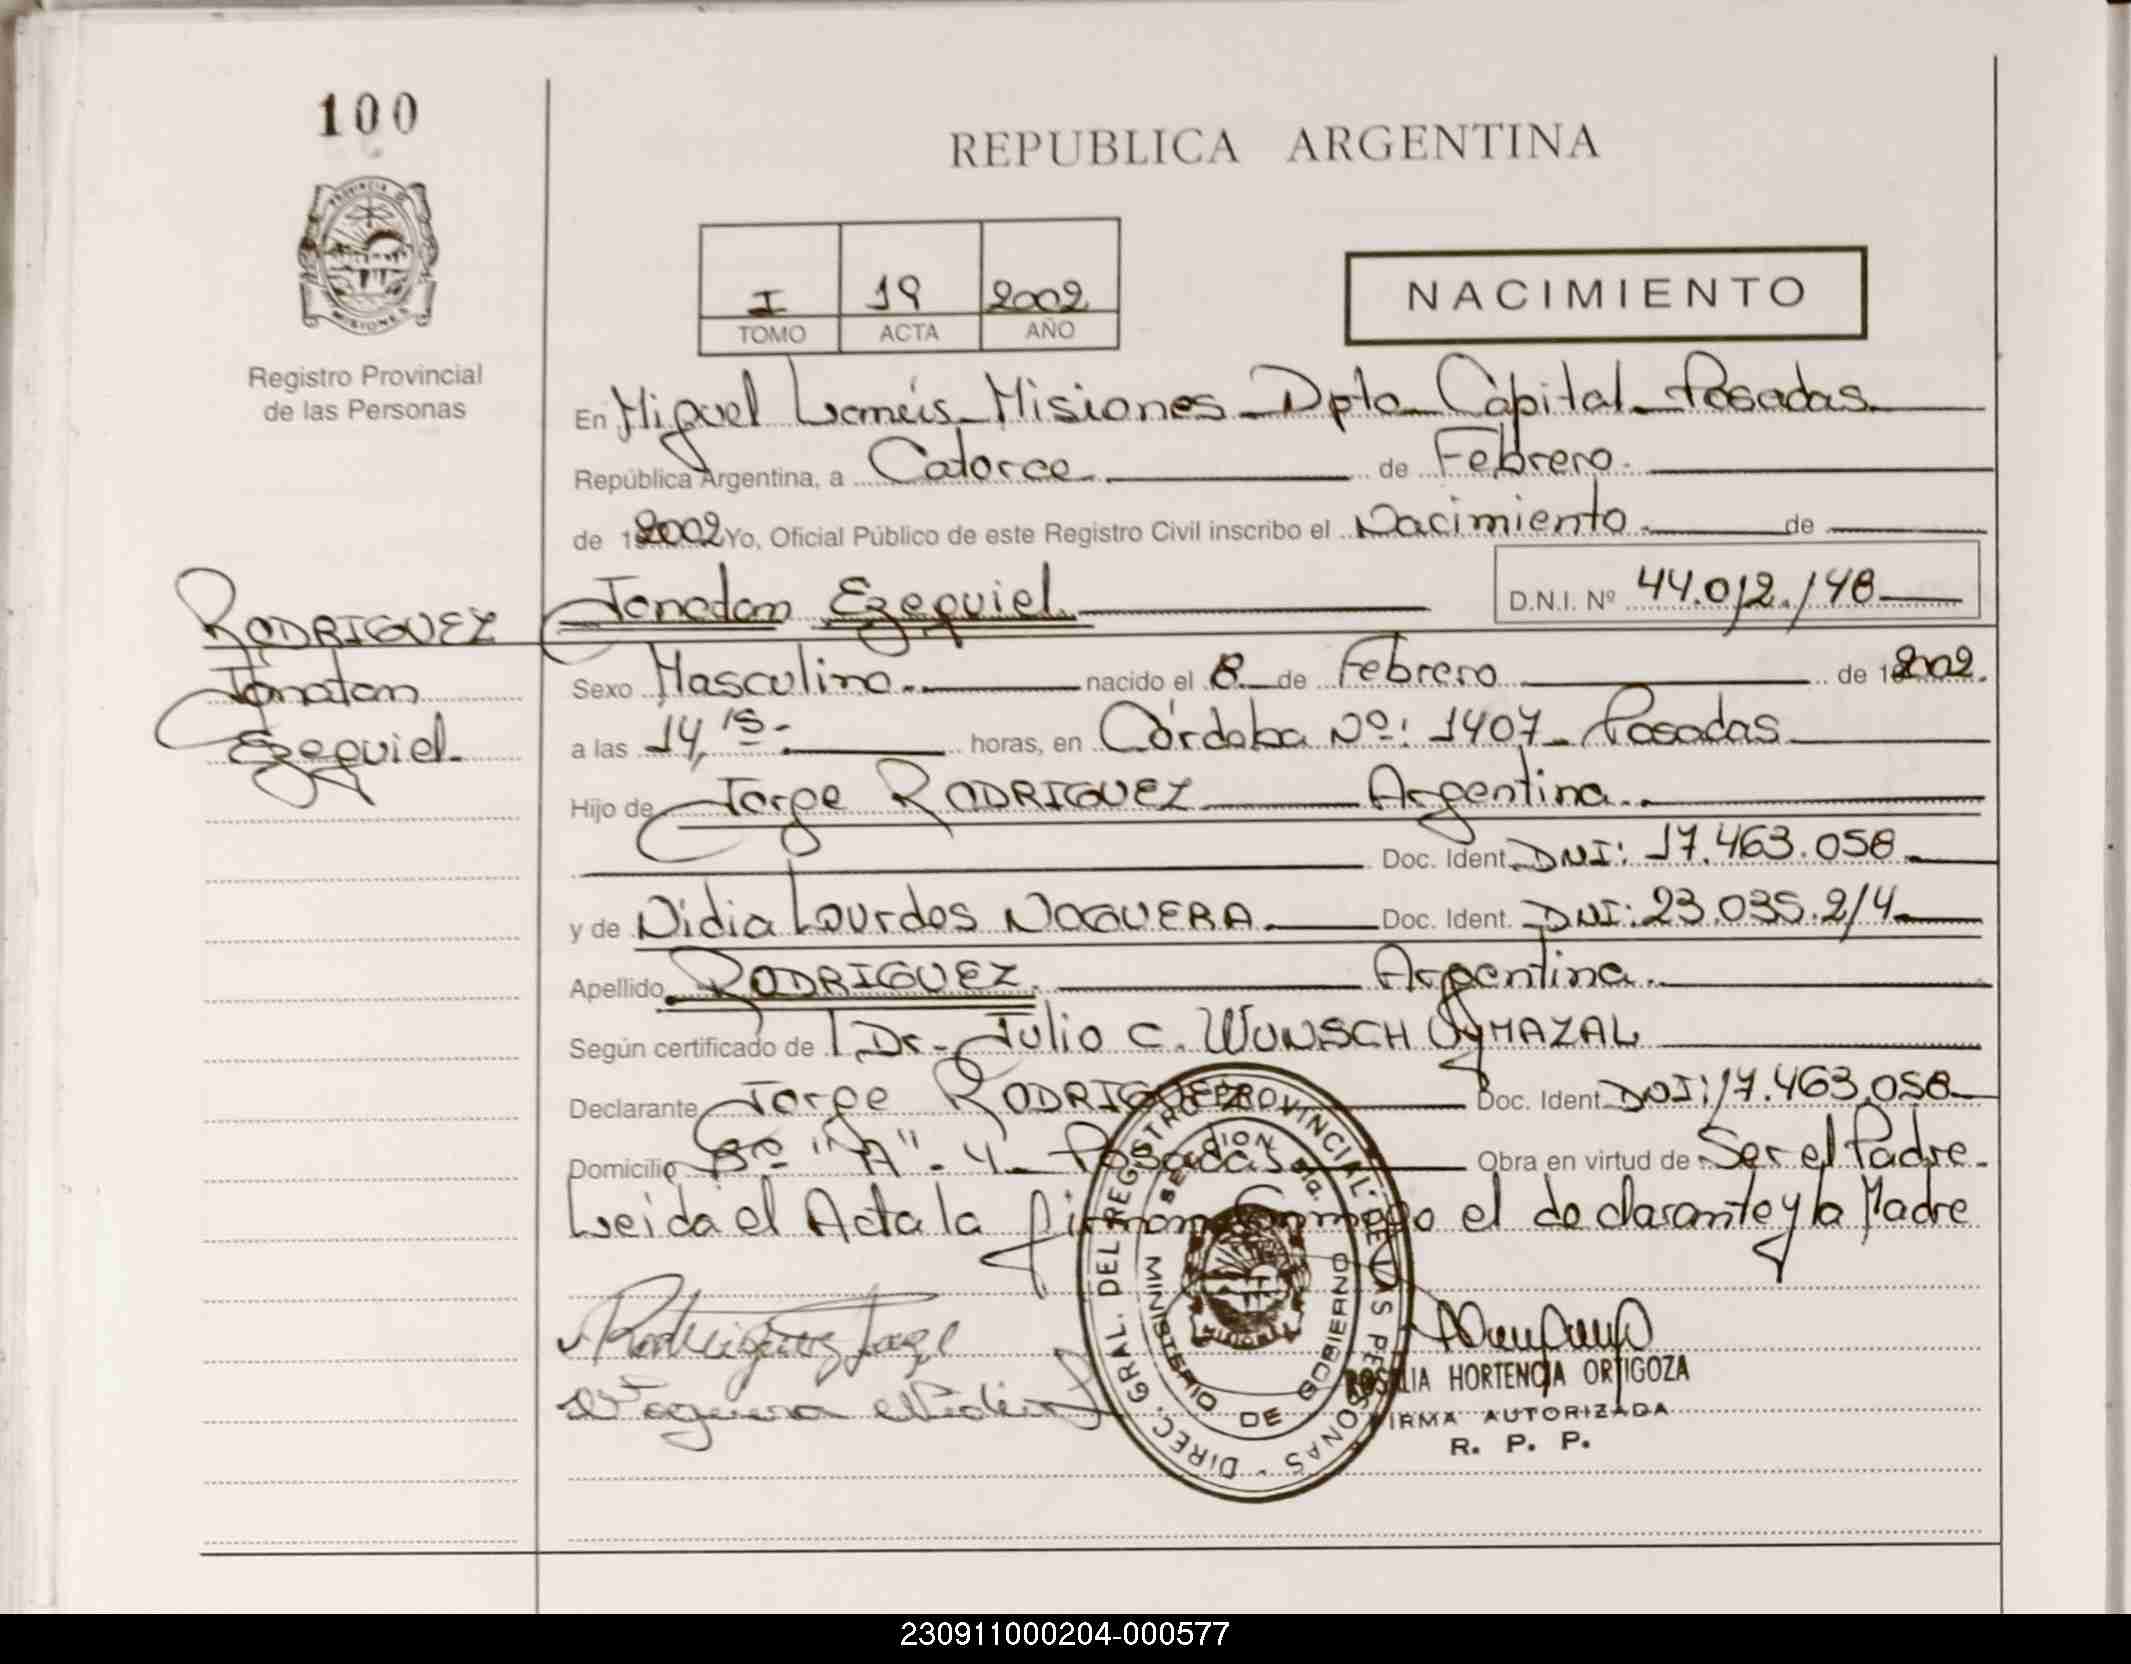 100
REPUBLICA ARGENTINA
PROVINCIA DE
MISIONES
Registro Provincial
de las Personas
I 19 2002
TOMO ACTA AÑO
NACIMIENTO
En Miguel Lanús - Misiones - Dpto Capital - Posadas
República Argentina, a Catorce de Febrero
de 2002 Yo, Oficial Público de este Registro Civil inscribo el Nacimiento de
Jonatan Ezequiel D.N.I. Nº 44.012.148
RODRIGUEZ
Jonatan
Ezequiel
Sexo Masculino nacido el 8 de Febrero de 2002.
a las 14,15 horas, en Córdoba Nº: 1407 - Posadas
Hijo de Jorge RODRIGUEZ Argentina
Doc. Ident. DNI: 17.463.058
y de Nidia Lourdes NOGUERA Doc. Ident. DNI: 23.035.214
Apellido RODRIGUEZ Argentina
Según certificado de Dr. Julio C. WUNSCH
Declarante Jorge RODRIGUEZ Doc. Ident. DNI: 17.463.058
Domicilio Bº "A" - 4 - Posadas Obra en virtud de Ser el Padre.
Leida el Acta la firman conmigo el declarante y la Madre
Rodriguez Jorge
Noguera Nidia
DIREC. GRAL. DEL REGISTRO PROVINCIAL DE LAS PERSONAS
MINISTERIO DE GOBIERNO
HORTENCIA ORTIGOZA
FIRMA AUTORIZADA
R. P. P.
230911000204-000577